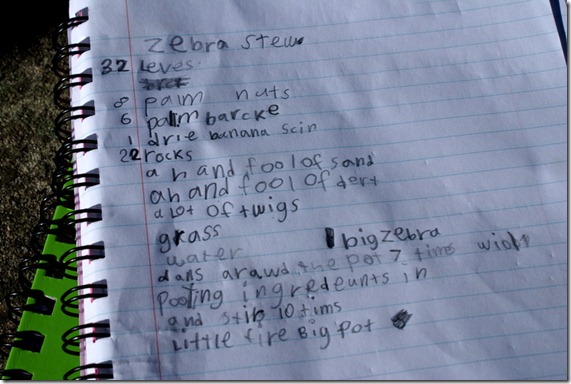 zebra stew
32 leves
8 palm nuts
6 palm barcke
1 drie banana scin
22 rocks
a hand fool of sand
a hand fool of dert
a lot of twigs
grass
1 big zebra
water
dans arawd the pot 7 tims
pooting ingredeunts in
and stir 10 tims
Little fire Big pot